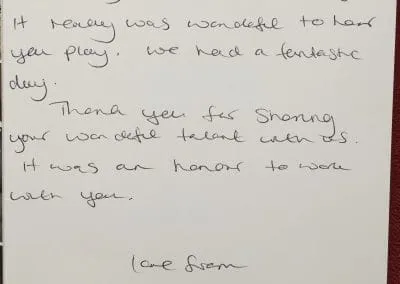 It really was wonderful to hear
you play. We had a fantastic
day.
Thank you for sharing
your wonderful talent with us.
It was an honour to work
with you.
love from